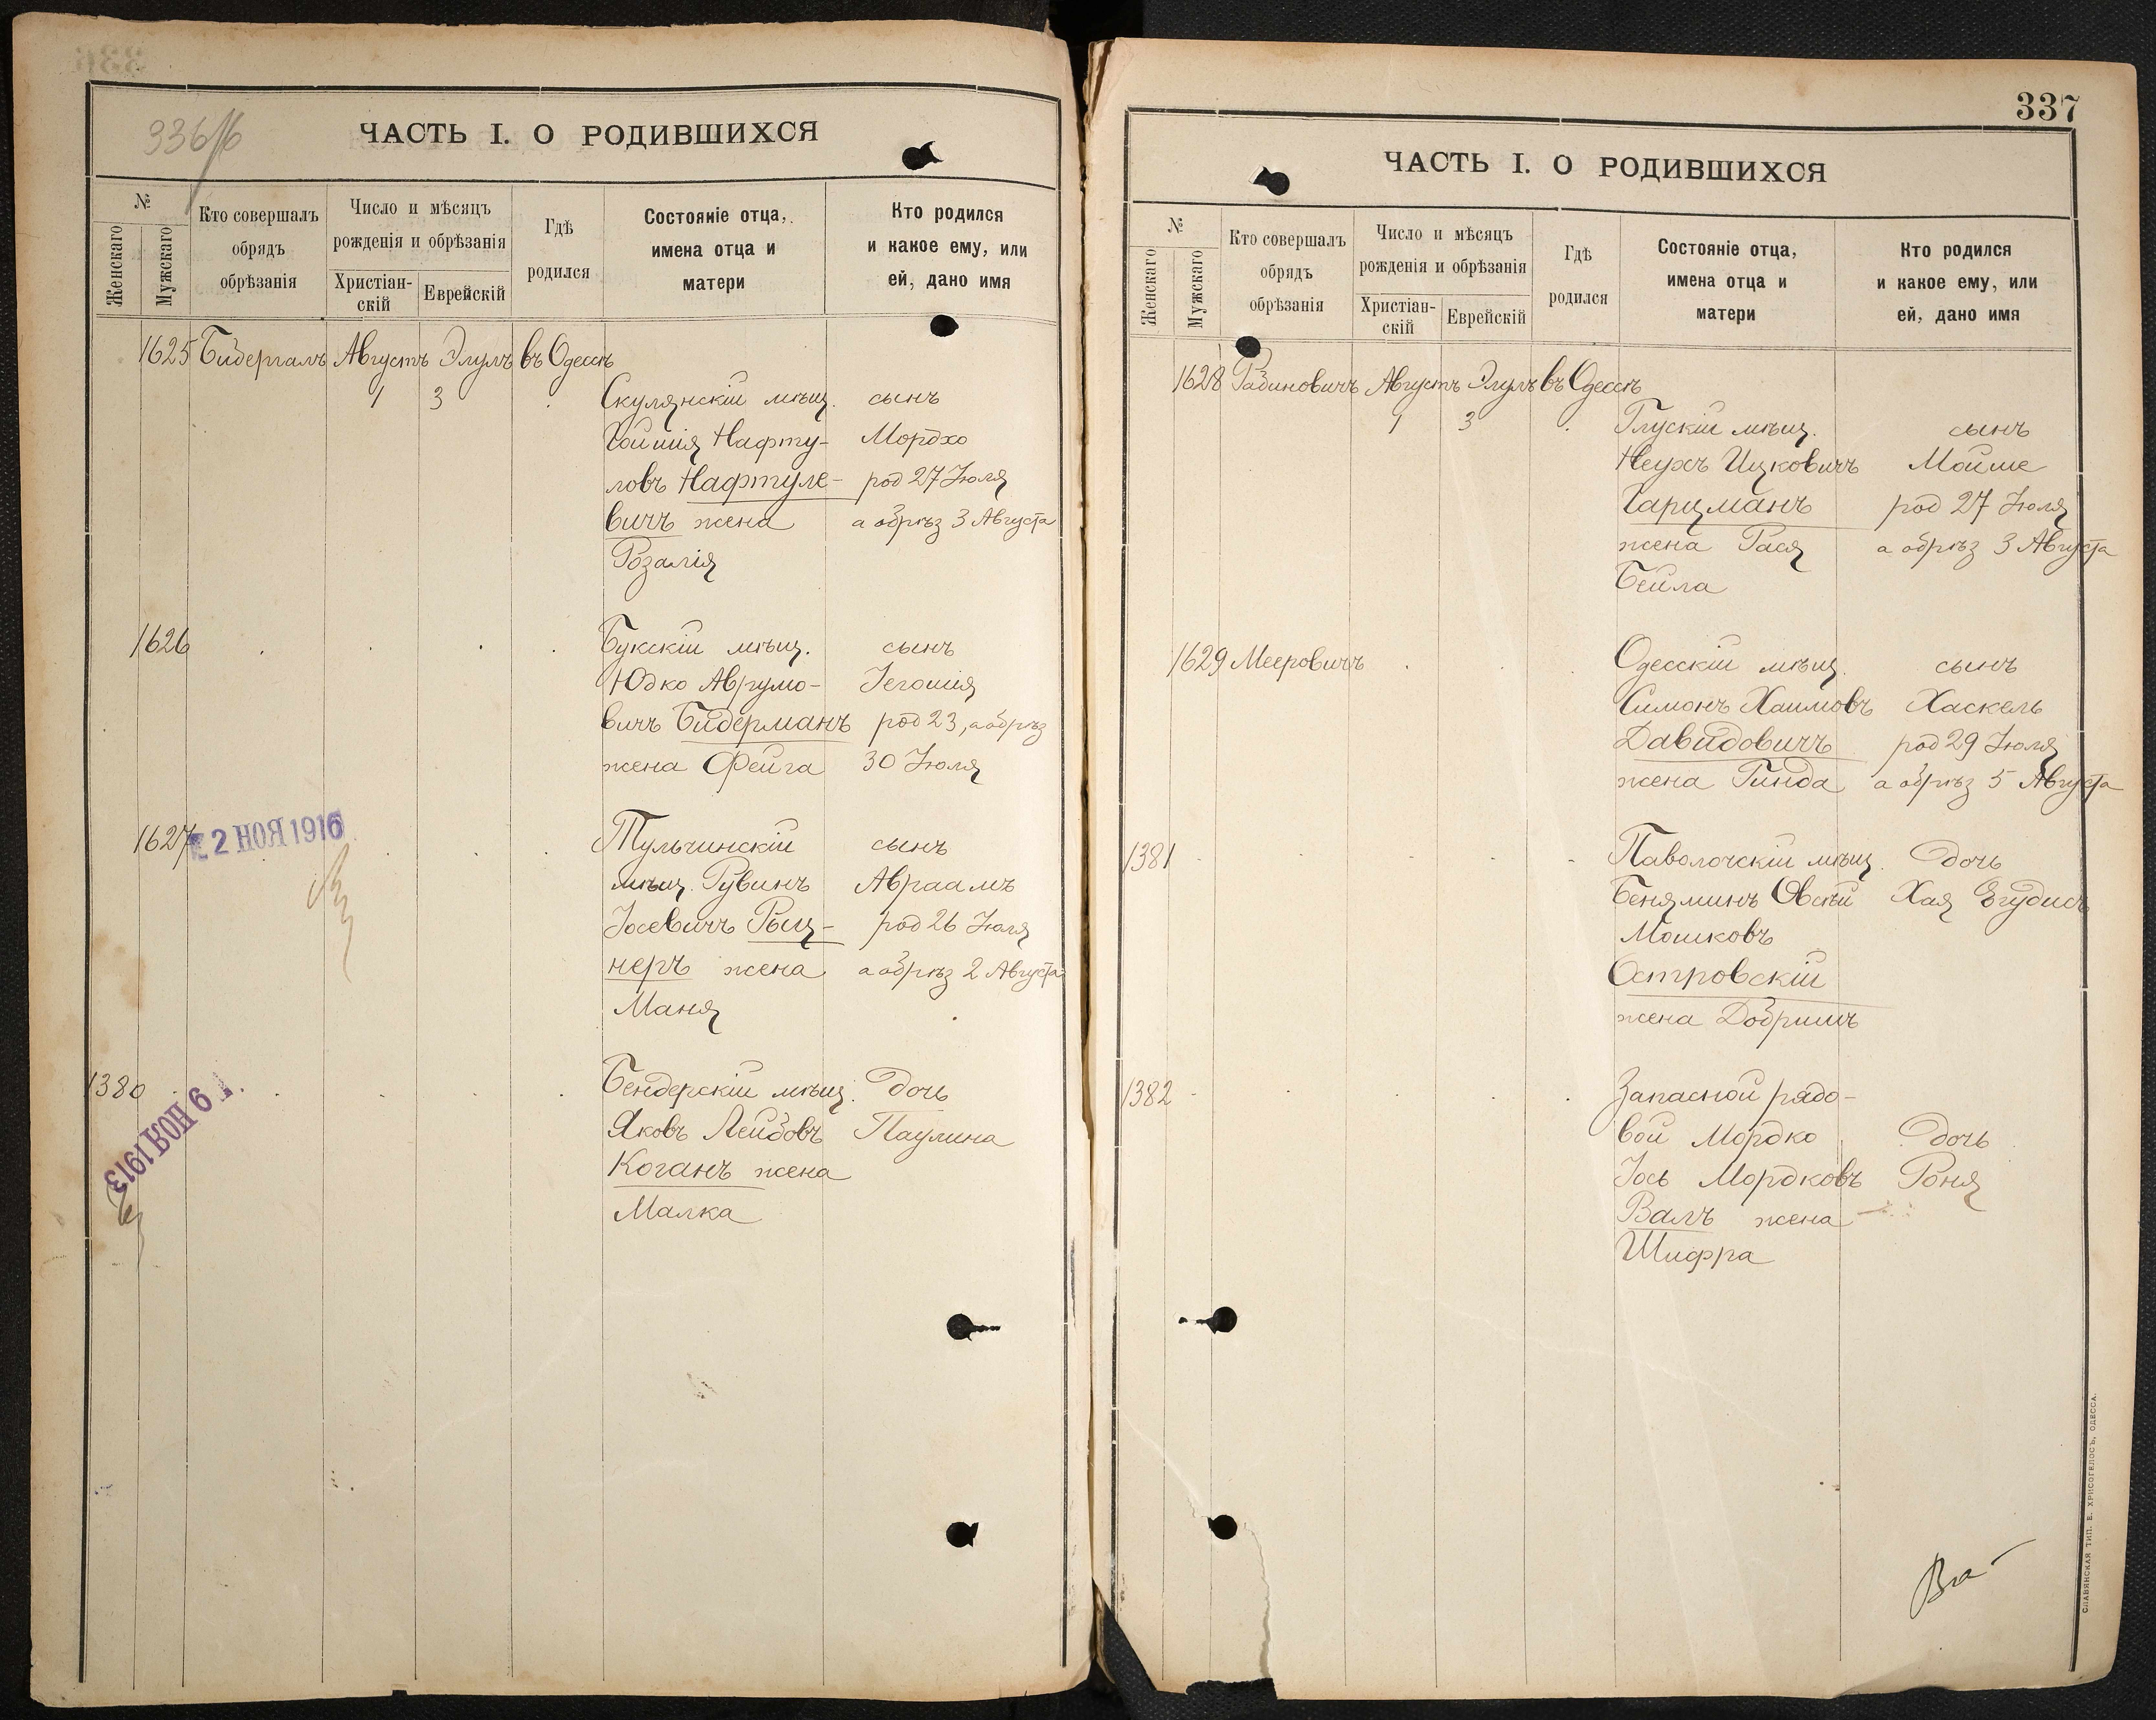 336/б
ЧАСТЬ I. О РОДИВШИХСЯ
№
Женскаго
Мужскаго
Кто совершалъ
обрядъ
обрѣзанія
Число и мѣсяцъ
рожденія и обрѣзанія
Христіан-
скій
Еврейскій
Гдѣ
родился
Состояніе отца,
имена отца и
матери
Кто родился
и какое ему, или
ей, дано имя
1625 Бидергалъ Августъ Элулъ въ Одессѣ
1 3 Скулянскій мѣщ. сынъ
Гойшія Нафту- Мордхо
ловъ Нафтуле- род 27 Іюля
вичъ жена а обрѣз 3 Августа
Розалія
1626 Букскій мѣщ. сынъ
Юдко Аврумо- Іегошія
вичъ Бидерманъ род 23, а обрѣз
жена Фейга 30 Іюля
1627 2 НОЯ 1916 Тульчинскій сынъ
мѣщ. Рувинъ Авраамъ
Іосевичъ Рыц- род 26 Іюля
неръ жена а обрѣз 2 Августа
Маня
1380 Бендерскій мѣщ. дочь
Яковъ Лейбовъ Паулина
Коганъ жена
Малка
19 НОЯ 1913
337
ЧАСТЬ I. О РОДИВШИХСЯ
№
Женскаго
Мужскаго
Кто совершалъ
обрядъ
обрѣзанія
Число и мѣсяцъ
рожденія и обрѣзанія
Христіан-
скій
Еврейскій
Гдѣ
родился
Состояніе отца,
имена отца и
матери
Кто родился
и какое ему, или
ей, дано имя
1628 Рабиновичъ Августъ Элулъ въ Одессѣ
1 3 Глускій мѣщ. сынъ
Неухъ Ицковичъ Мойше
Гарцманъ род 27 Іюля
жена Гася а обрѣз 3 Августа
Бейла
1629 Мееровичъ Одесскій мѣщ. сынъ
Симонъ Хаимовъ Хаскель
Давидовичъ род 29 Іюля
жена Гинда а обрѣз 5 Августа
1381 Паволочскій мѣщ. дочь
Беняминъ Овсѣй Хая Егудисъ
Мошковъ
Островскій
жена Добришъ
1382 Запасной рядо-
вой Мордко дочь
Іось Мордковъ Роня
Валъ жена
Шифра
СЛАВЯНСКАЯ ТИП. Е. ХРИСОГЕЛОСЪ, ОДЕССА.